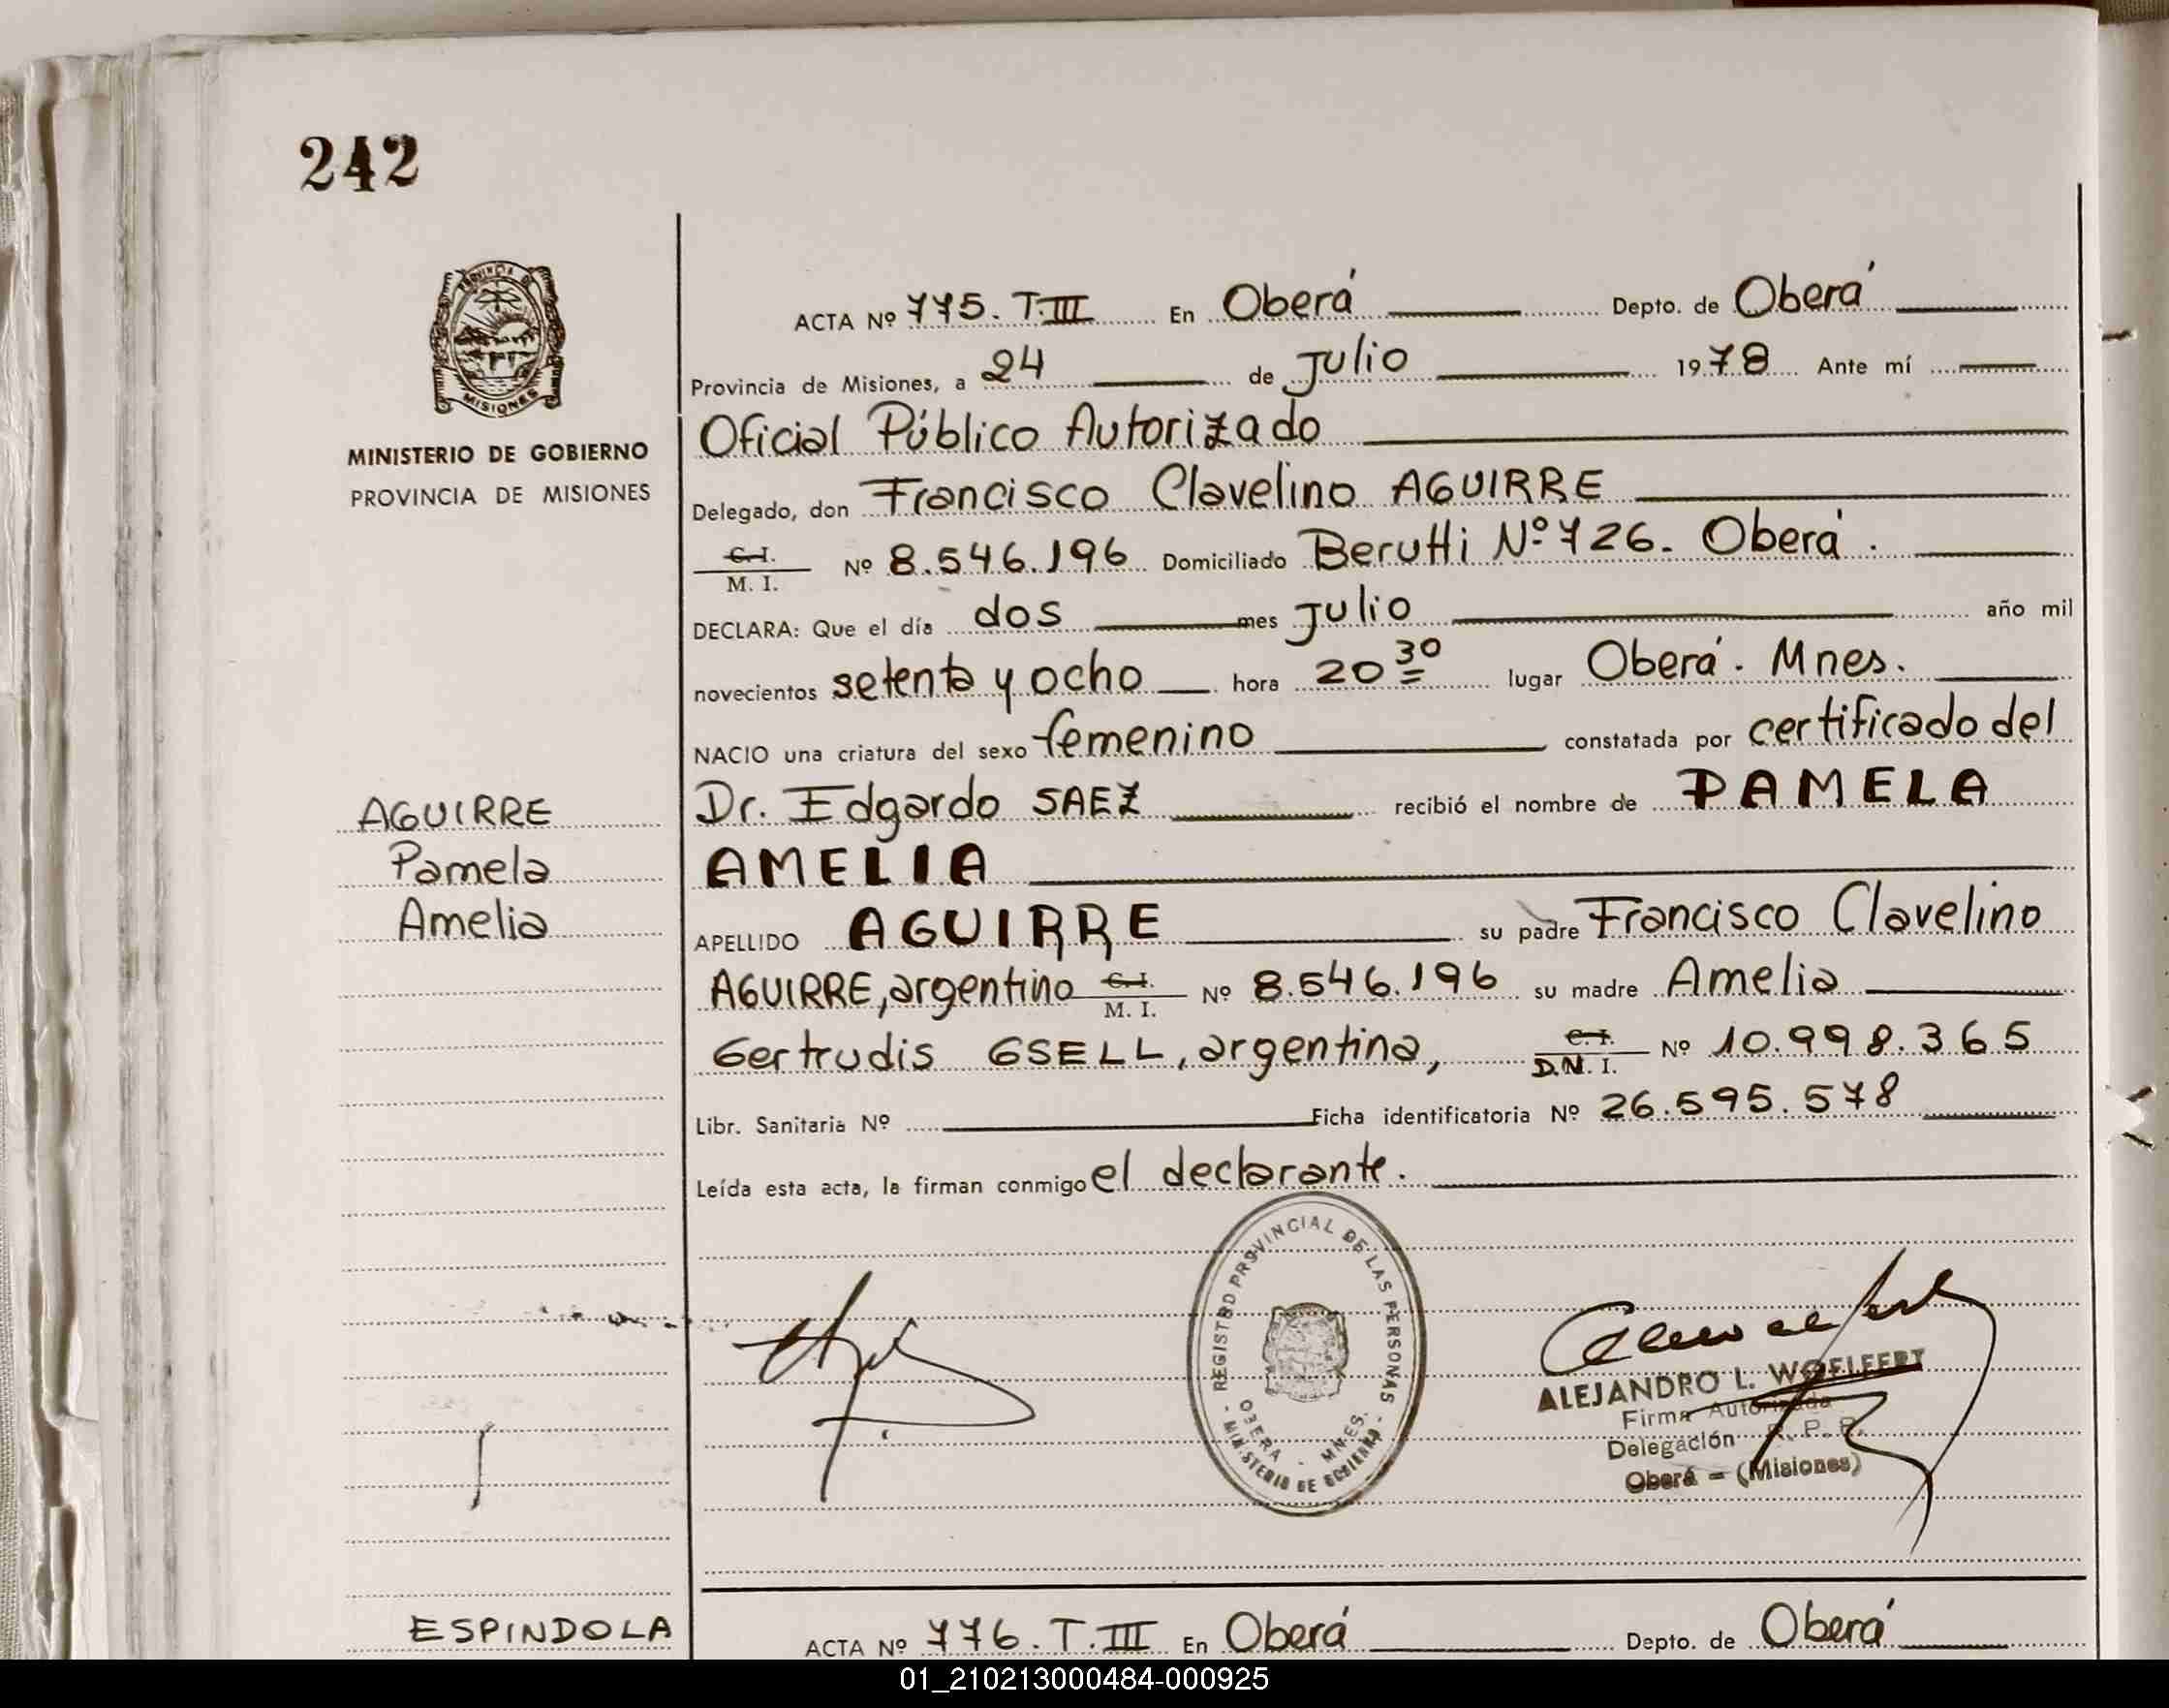 242
PROVINCIA DE
MISIONES
MINISTERIO DE GOBIERNO
PROVINCIA DE MISIONES
ACTA Nº 775. T.III En Oberá Depto. de Oberá
Provincia de Misiones, a 24 de Julio 1978 Ante mí
Oficial Público Autorizado
Delegado, don Francisco Clavelino AGUIRRE
C.I. M.I. Nº 8.546.196 Domiciliado Berutti Nº 726. Oberá.
DECLARA: Que el día dos mes Julio año mil
novecientos setenta y ocho hora 20 30 lugar Oberá. Mnes.
NACIO una criatura del sexo femenino constatada por certificado del
Dr. Edgardo SAEZ recibió el nombre de PAMELA
AMELIA
APELLIDO AGUIRRE su padre Francisco Clavelino
AGUIRRE, argentino C.I. M.I. Nº 8.546.196 su madre Amelia
Gertrudis GSELL, argentina, C.I. D.N.I. Nº 10.998.365
Libr. Sanitaria Nº Ficha identificatoria Nº 26.595.578
Leída esta acta, la firman conmigo el declarante.
AGUIRRE
Pamela
Amelia
REGISTRO PROVINCIAL DE LAS PERSONAS
OBERA - MNES.
- MINISTERIO DE GOBIERNO -
ALEJANDRO L. WOELFERT
Firma Autorizada
Delegación R. P. P.
Oberá - (Misiones)
ESPINDOLA
ACTA Nº 776. T.III En Oberá Depto. de Oberá
01_210213000484-000925